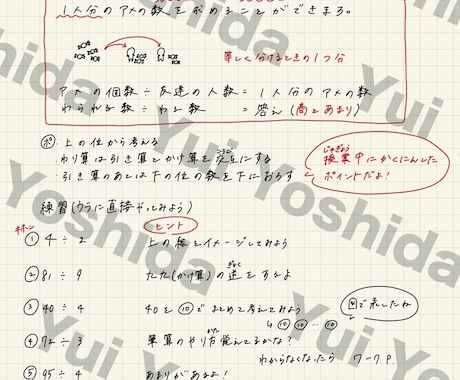 1人分のアメの数を求めることができまる。
等しく分けるときの1つ分
アメの個数÷友達の人数=1人分のアメの数
わられる数÷わる数=答え(商とあまり)
ポ 上の位から考える
・わり算は引き算とかけ算を交互にする
・引き算のあとは下の位の数を下におろす
授業中にかくにんした
じゅぎょう
ポイントだよ!
練習(ウラに直接やってみよう)
ヒント
① 4÷2 上の絵をイメージしてみよう
② 81÷9 九九(かけ算)の逆をするよ
ぎゃく
③ 40÷4 40を⑩でまとめて考えてみよう
図で示したね
⑩ ⑩ … ⑩
④ 72÷3 筆算のやり方覚えてるかな?
わからなくなったら ワークP.
⑤ 95÷4 あまりがあるよ!
Yui Yoshida
Yui Yoshida
Yui Yoshida